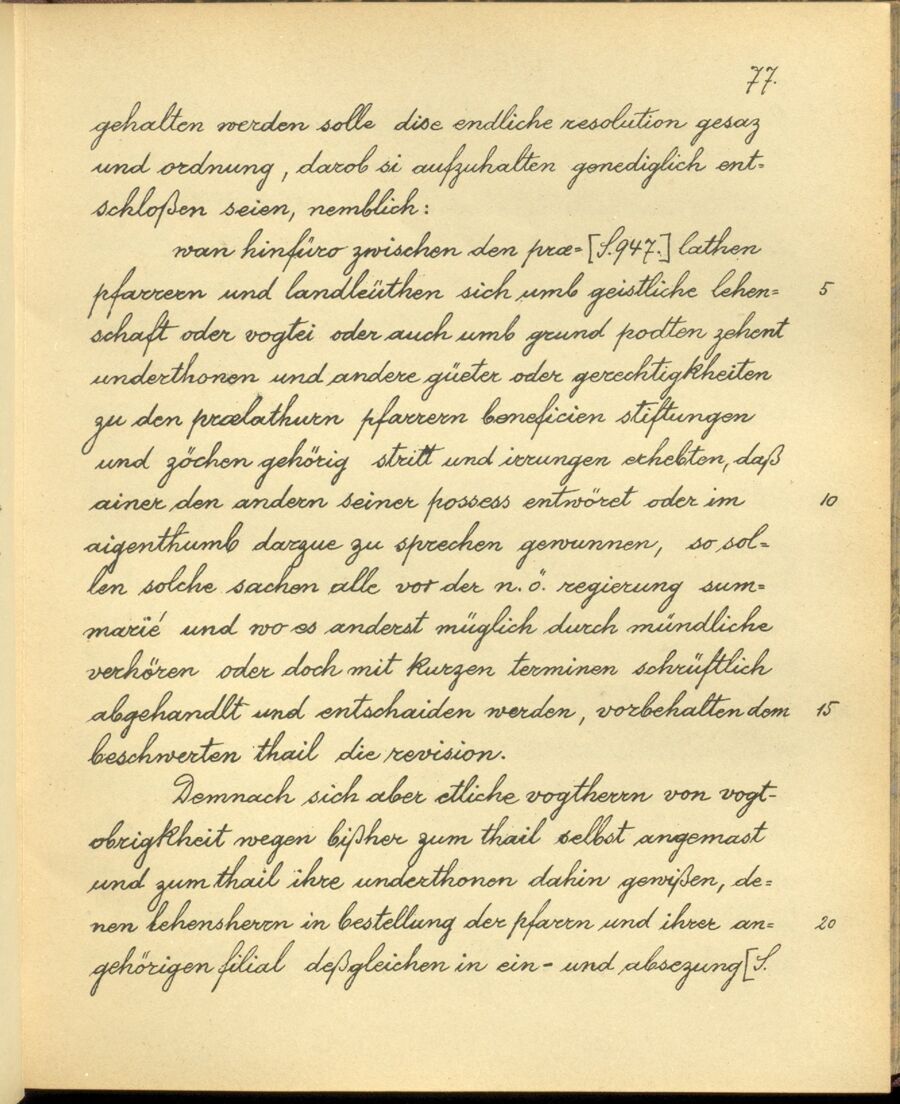 77.
gehalten werden solle dise endliche resolution gesaz
und ordnung, darob si aufzuhalten genediglich ent=
schloßen seien, nemblich:
wan hinfüro zwischen den præ=[S.947.] lathen
pfarrern und landleüthen sich umb geistliche lehen= 5
schaft oder vogtei oder auch umb grund podten zehent
underthonen und andere güeter oder gerechtigkheiten
zu den prælathurn pfarrern beneficien stiftungen
und zöchen gehörig stritt und irrungen erhebten, daß
ainer den andern seiner possess entwöret oder im 10
aigenthumb darzue zu sprechen gewunnen, so sol=
len solche sachen alle vor der n. ö. regierung sum=
marié und wo es anderst müglich durch mündliche
verhören oder doch mit kurzen terminen schrüftlich
abgehandlt und entschaiden werden, vorbehalten dem 15
beschwerten thail die revision.
Demnach sich aber etliche vogtherrn von vogt-
obrigkheit wegen bißher zum thail selbst angemast
und zum thail ihre underthonen dahin gewißen, de=
nen lehensherrn in bestellung der pfarrn und ihrer an= 20
gehörigen filial deßgleichen in ein- und absezung [S.